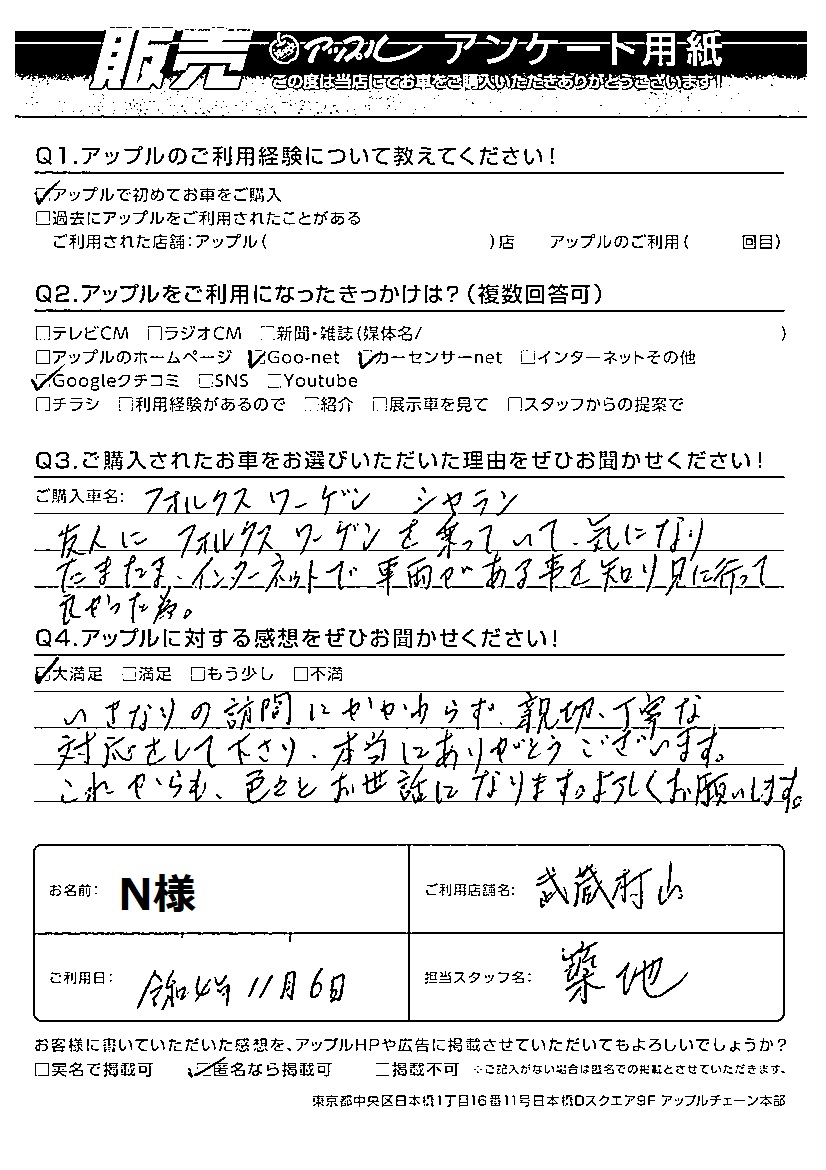 販売 アップル アンケート用紙
この度は当店にてお車をご購入いただきありがとうございます!
Q1.アップルのご利用経験について教えてください!
☑アップルで初めてお車をご購入
□過去にアップルをご利用されたことがある
ご利用された店舗:アップル( )店 アップルのご利用( 回目)
Q2.アップルをご利用になったきっかけは?(複数回答可)
□テレビCM □ラジオCM □新聞・雑誌(媒体名/ )
□アップルのホームページ ☑Goo-net ☑カーセンサーnet □インターネットその他
☑Googleクチコミ □SNS □Youtube
□チラシ □利用経験があるので □紹介 □展示車を見て □スタッフからの提案で
Q3.ご購入されたお車をお選びいただいた理由をぜひお聞かせください!
ご購入車名: フォルクスワーゲン シャラン
友人にフォルクスワーゲンを乗っていて、気になり
たまたま、インターネットで車両がある事を知り見に行って
良かった為。
Q4.アップルに対する感想をぜひお聞かせください!
☑大満足 □満足 □もう少し □不満
いきなりの訪問にかかわらず、親切、丁寧な
対応をして下さり、本当にありがとうございます。
これからも、色々とお世話になります。よろしくお願いします。
お名前: N様 ご利用店舗名: 武蔵村山
ご利用日: 令和4年11月6日 担当スタッフ名: 築地
お客様に書いていただいた感想を、アップルHPや広告に掲載させていただいてもよろしいでしょうか?
□実名で掲載可 ☑匿名なら掲載可 □掲載不可 ※ご記入がない場合は匿名での掲載とさせていただきます。
東京都中央区日本橋1丁目16番11号日本橋Dスクエア9F アップルチェーン本部